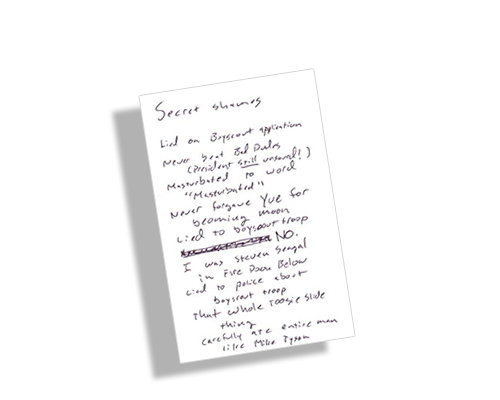 Secret shames
Lied on Boyscout application
Never beat Bad Dudes
(President still unsaved!)
Masturbated to word
"Masturbated"
Never forgave Yue for
becoming moon
Lied to boyscout troop
NO.
I was Steven Seagal
in Fire Down Below
Lied to police about
boyscout troop
That whole Toosie Slide
thing
Carefully ate entire man
like Mike Tyson